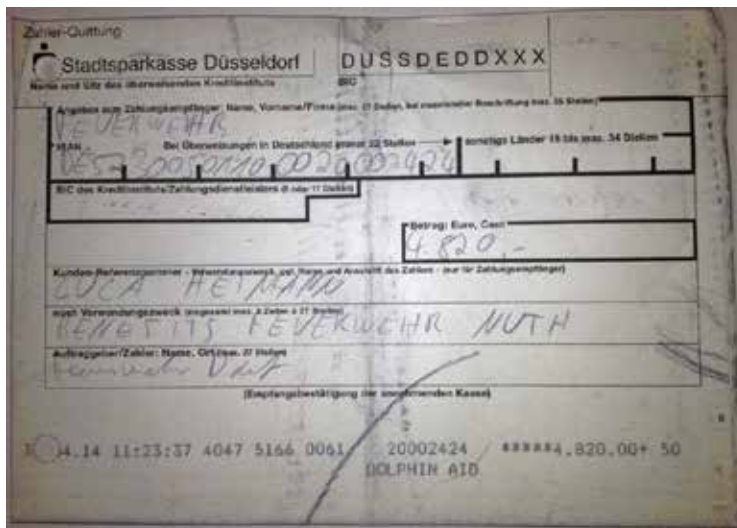 Zahler-Quittung
Stadtsparkasse Düsseldorf DUSSDEDDXXX
Name und Sitz des überweisenden Kreditinstituts BIC
Angaben zum Zahlungsempfänger: Name, Vorname/Firma (max. 27 Stellen, bei maschineller Beschriftung max. 35 Stellen)
FEUERWEHR
IBAN Bei Überweisungen in Deutschland immer 22 Stellen sonstige Länder 15 bis max. 34 Stellen
DE52300501100020002424
BIC des Kreditinstituts/Zahlungsdienstleisters (8 oder 11 Stellen)
Betrag: Euro, Cent
4.820,-
Kunden-Referenznummer - Verwendungszweck, ggf. Name und Anschrift des Zahlers - (nur für Zahlungsempfänger)
LUCA HEIMANN
noch Verwendungszweck (insgesamt max. 2 Zeilen à 27 Stellen)
BENEFITS FEUERWEHR NUTH
Auftraggeber/Zahler: Name, Ort (max. 27 Stellen)
(Empfangsbestätigung der annehmenden Kasse)
04.14 11:23:37 4047 5166 0061 20002424 *****4.820,00+ 50
DOLPHIN AID